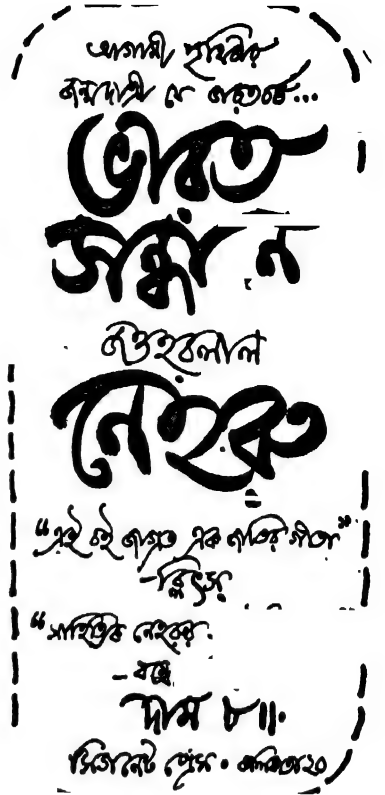 আগামী পৃথিবীর
জন্মদাত্রী যে ভারতবর্ষ...
ভারত
সন্ধানে
জওহরলাল
নেহরু
“এই বই জাগ্রত এক জাতির গীতা”
—ব্লিৎস্
“সাহিত্যিক নেহরুর
দাম ৮॥৹
সিগনেট প্রেস • কলিকাতা ২০